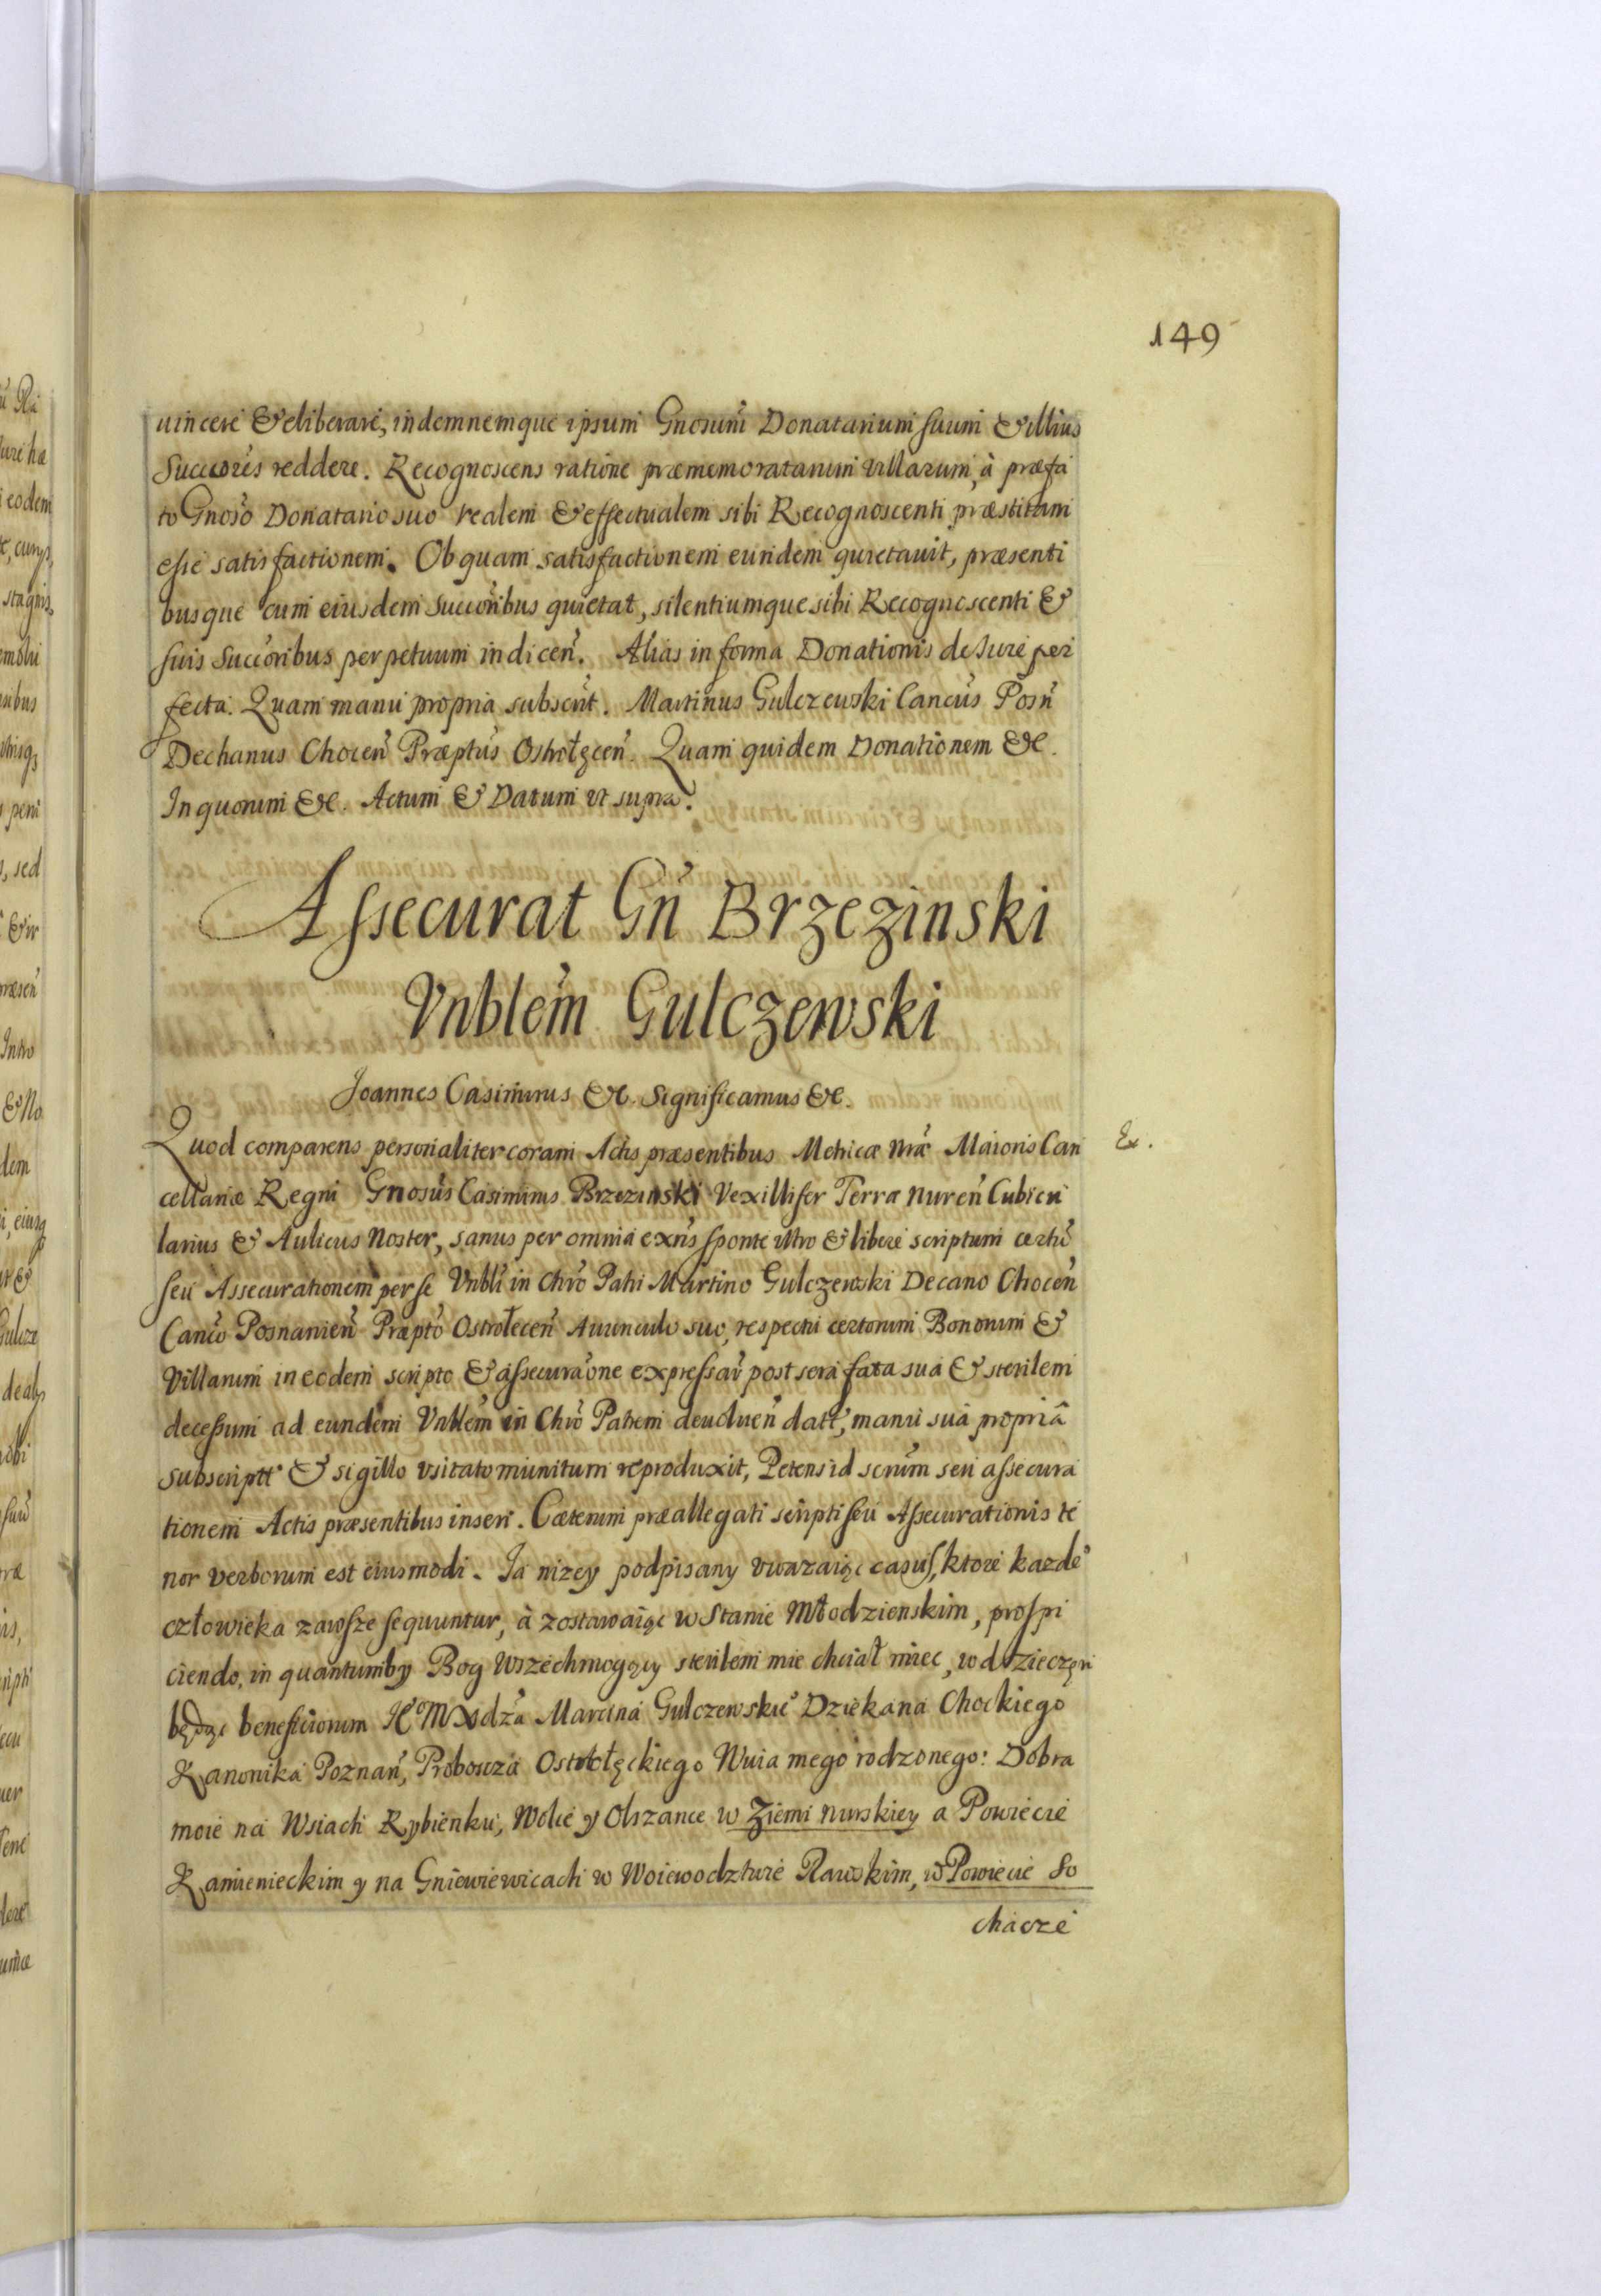 149
uincere & eliberare, indemnemque ipsum Gnosum Donatarium suum & illius
Succores reddere. Recognoscens ratione præmemoratarum villarum, à præfa
to Gnoso Donatario suo realem & effectualem sibi Recognoscenti præstitam
esse satisfactionem. Ob quam satisfactionem eundem quietauit, præsenti
busque cum eiusdem Succoribus quietat, silentiumque sibi Recognoscenti &
suis Succoribus perpetuum indicen. Alias in forma Donationis de Iure per
fecta. Quam manu propria subscrit. Martinus Gulczewski Cancus Posn
Dechanus Chocen Præptus Ostrołęcen. Quam quidem Donationem &c.
In quorum &c. Actum & Datum vt supra.
Assecurat Gn Brzezinski
Vnblem Gulczewski
Joannes Casimirus &c. Significamus &c.
Quod comparens personaliter coram Actis præsentibus Metricæ Nræ Maioris Can
Ex.
cellariæ Regni Gnosus Casimirus Brzezinski Vexillifer Terræ Nuren Cubicu
larius & Aulicus Noster, sanus per omnia exns sponte vltro & libere scriptum certu
seu Assecurationem per se Vnbli in Chro Patri Martino Gulczewski Decano Chocen
Canco Posnanien Præpto Ostrołecen Auunculo suo, respectu certorum Bonorum &
Villarum in eodem scripto & assecuraone expressar post sera fata sua & sterilem
decessum ad eundem Vnblem in Chro Patrem deuoluen datt, manu suâ propriâ
subscriptt & sigillo vsitato munitum reproduxit, Petens id scrum seu assecura
tionem Actis præsentibus inseri. Cæterum præallegati scripti seu Assecurationis te
nor verborum est eiusmodi. Ia nizey podpisany vwazaiąc casus, ktore kazde°
człowieka zawsze sequuntur, à zostawaiąc w Stanie Młodzienskim, prospi
ciendo, in quantumby Bog Wszechmogący sterilem mie chciał miec, wdzieczen
będąc beneficiorum Je° M Xdza Marcina Gulczewskie° Dziekana Chockiego
Kanonika Poznan, Probowza Ostrołęckiego Wuia mego rodzonego: Dobra
moie na Wsiach Rybienku, Wolce y Olszance w Ziemi Nurskiey a Powiecie
Kamienieckim y na Gniewiewicach w Woiewodztwie Rawskim, w Powiecie So
chacze